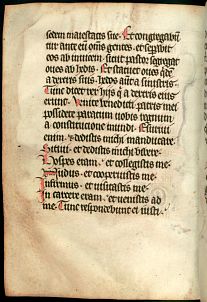 sedem maiestatis sue. Et congregabun
tur ante eum omnes gentes. et sepabit
eos ab inuicem. sicut pastor segregat
oues ab hedis. Et statuet oues qdē
a dexteris suis. hedos aut a sinistris.
Tunc dicet rex hijs q a dexteris eius
erunt. Venite benedicti patris mei
possidete paratum uobis regnum
a constitucione mundi. Esuriui
enim. et dedistis michi manducare.
Sitiui. et dedistis michi bibere.
Hospes eram. et collegistis me.
Nudus. et cooperuistis me.
Infirmus. et uisitastis me.
In carcere eram. et uenistis ad
me. Tunc respondebunt ei iusti.